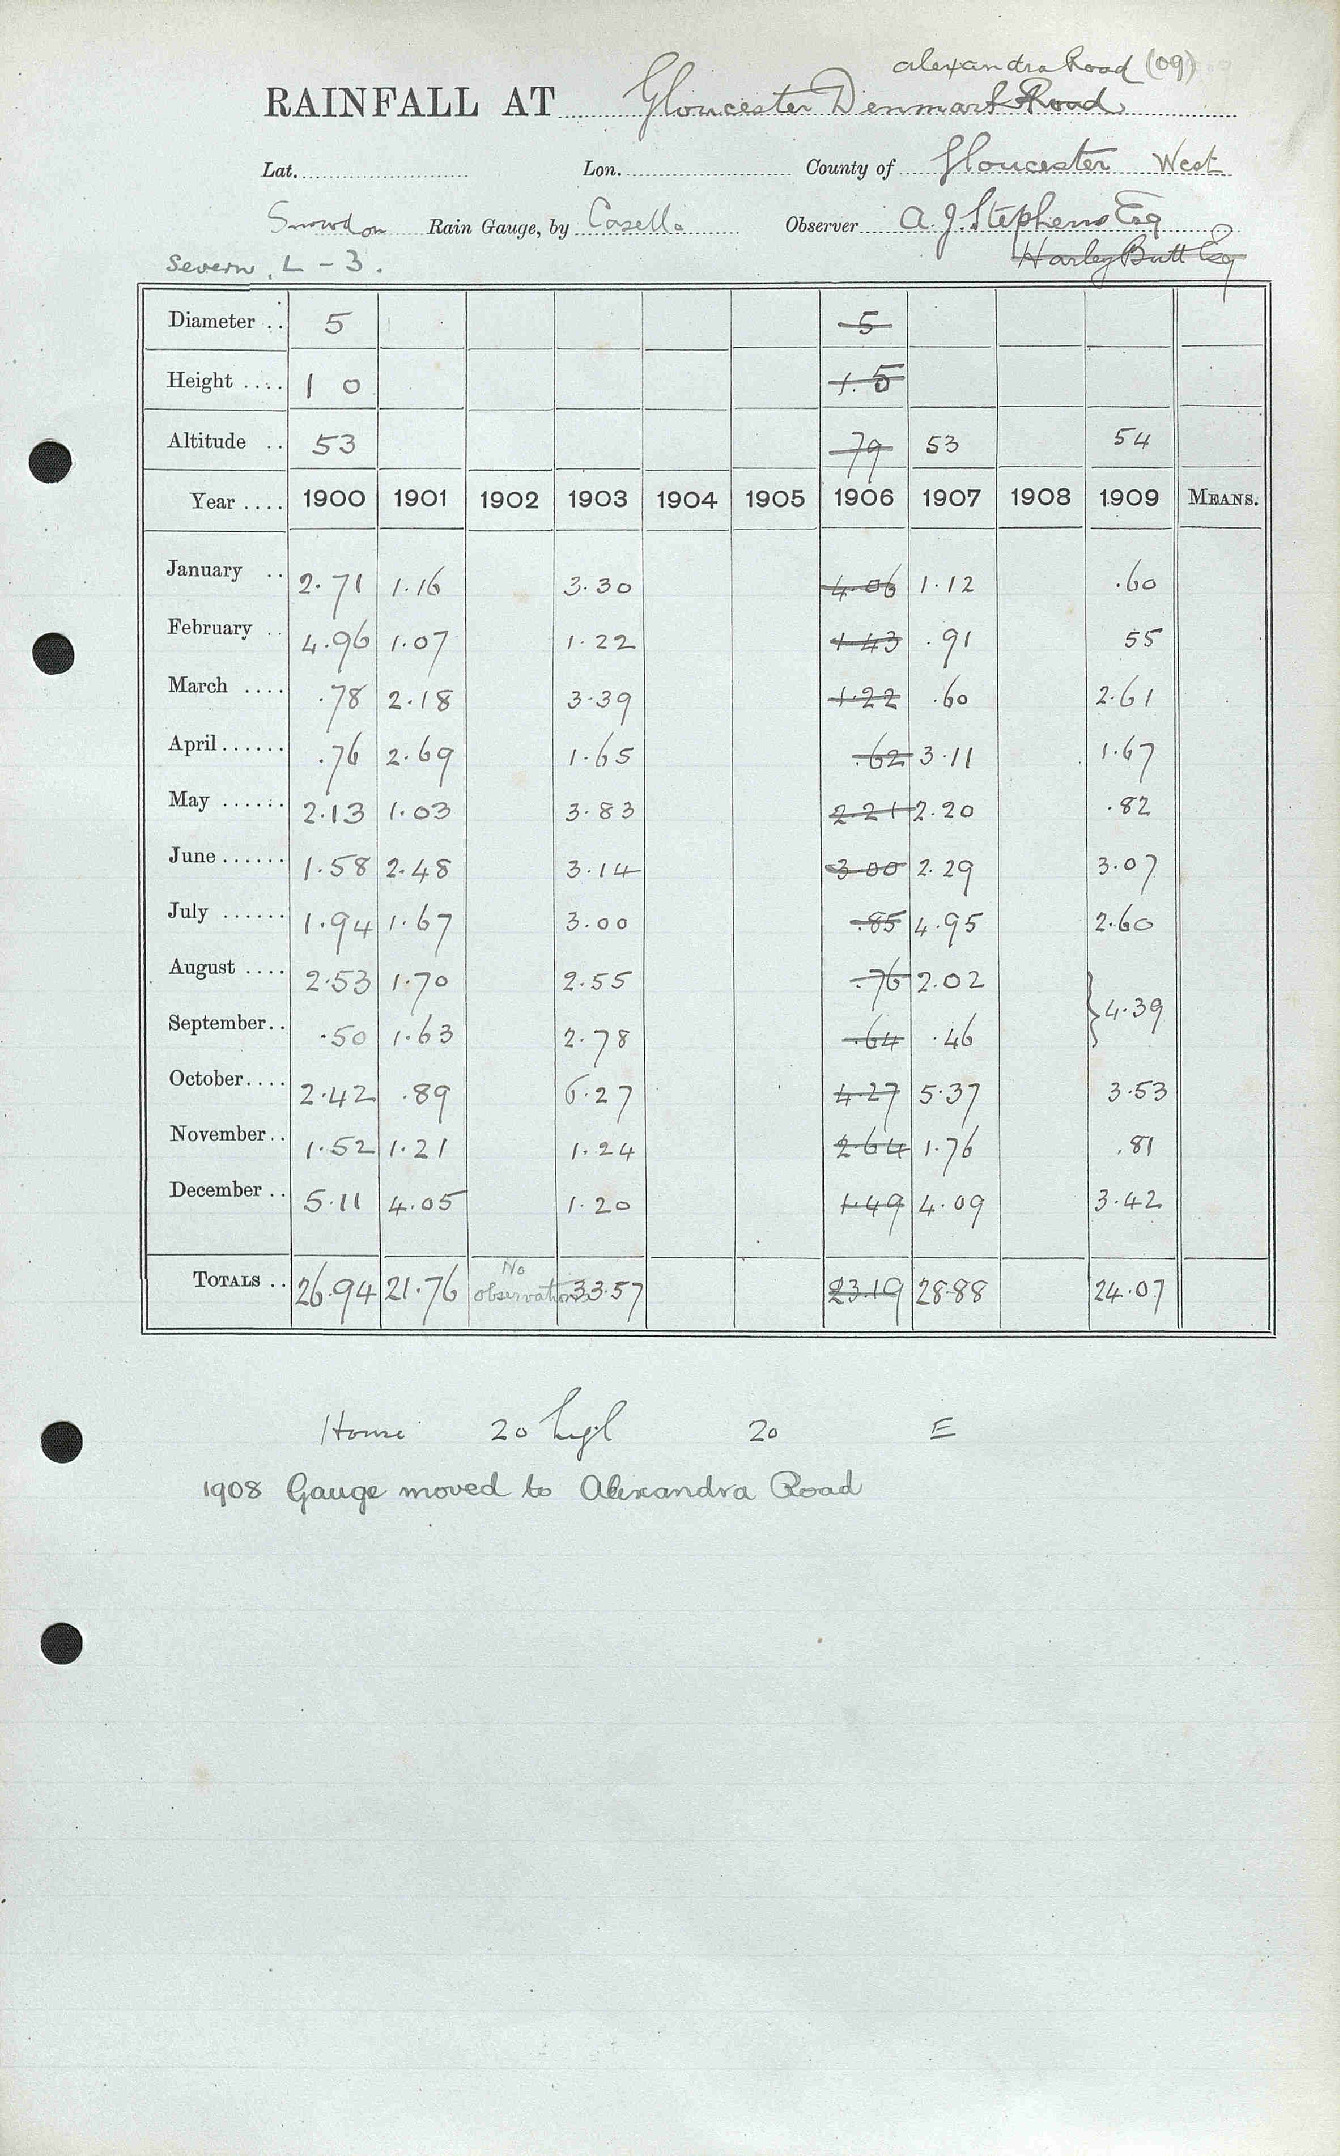 Alexandra Road (09)
RAINFALL AT Gloucester Denmark Road
Lat. Lon. County of Gloucester West
Snowdon Rain Gauge, by Casella Observer A. J. Stephens Esq
Severn. L - 3. Harley Butt Esq
Diameter .. 5 5
Height .... 1 0 1. 5
Altitude .. 53 79 53 54
Year .... 1900 1901 1902 1903 1904 1905 1906 1907 1908 1909 MEANS.
January .. 2.71 1.16 3.30 4.06 1.12 .60
February .. 4.96 1.07 1.22 1.43 .91 55
March .... .78 2.18 3.39 1.22 .60 2.61
April ...... .76 2.69 1.65 .62 3.11 1.67
May ...... 2.13 1.03 3.83 2.21 2.20 .82
June ...... 1.58 2.48 3.14 3.00 2.29 3.07
July ...... 1.94 1.67 3.00 .85 4.95 2.60
August .... 2.53 1.70 2.55 .76 2.02
September .. .50 1.63 2.78 .64 .46 } 4.39
October .... 2.42 .89 6.27 4.27 5.37 3.53
November .. 1.52 1.21 1.24 2.64 1.76 .81
December .. 5.11 4.05 1.20 1.49 4.09 3.42
TOTALS .. 26.94 21.76 No observations 33.57 23.19 28.88 24.07
House 20 high 20 E
1908 Gauge moved to Alexandra Road